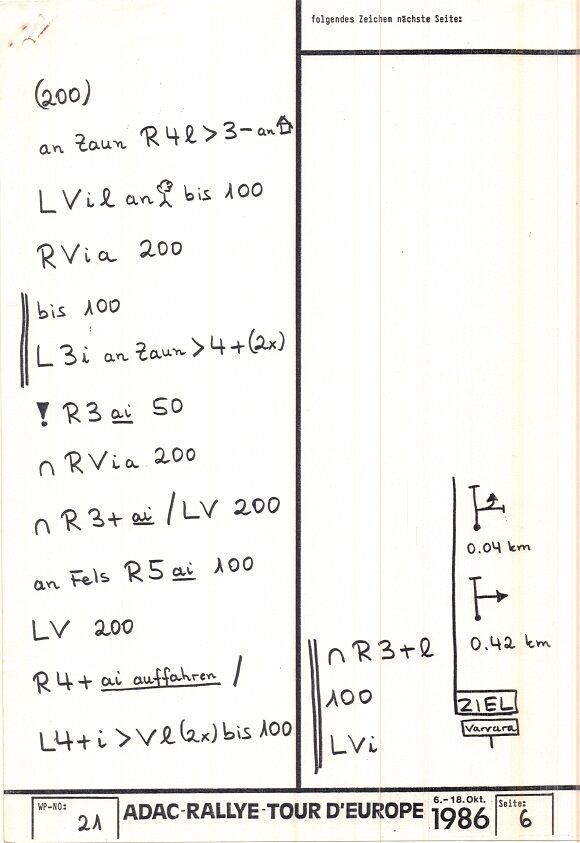 folgendes Zeichem nächste Seite:
(200)
an Zaun R4l>3-an
LVil an bis 100
RVia 200
bis 100
L3i an Zaun>4+(2x)
! R3 ai 50
∩ RVia 200
∩ R3+ ai / LV 200
an Fels R5 ai 100
LV 200
R4+ ai auffahren /
L4+i>Vl(2x) bis 100
∩ R3+l
100
LVi
0.04 km
0.42 km
ZIEL
Varvara
WP-NO: 21
ADAC-RALLYE-TOUR D'EUROPE
6.-18.Okt. 1986
Seite: 6